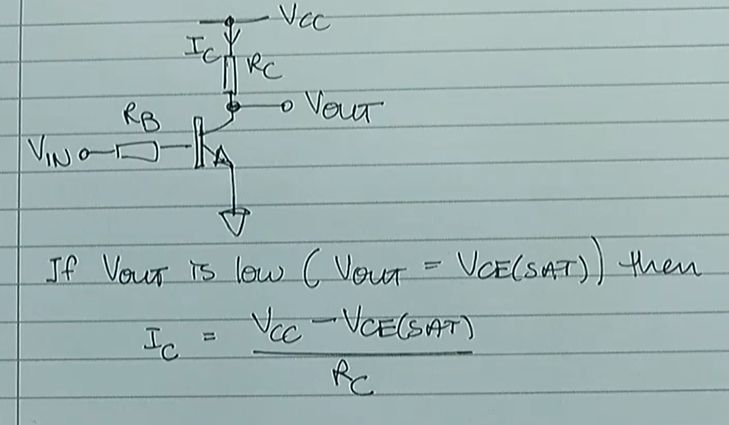 VCC
IC
RC
VOUT
RB
VIN
If VOUT is low (VOUT = VCE(SAT)) then
IC = VCC - VCE(SAT)
RC